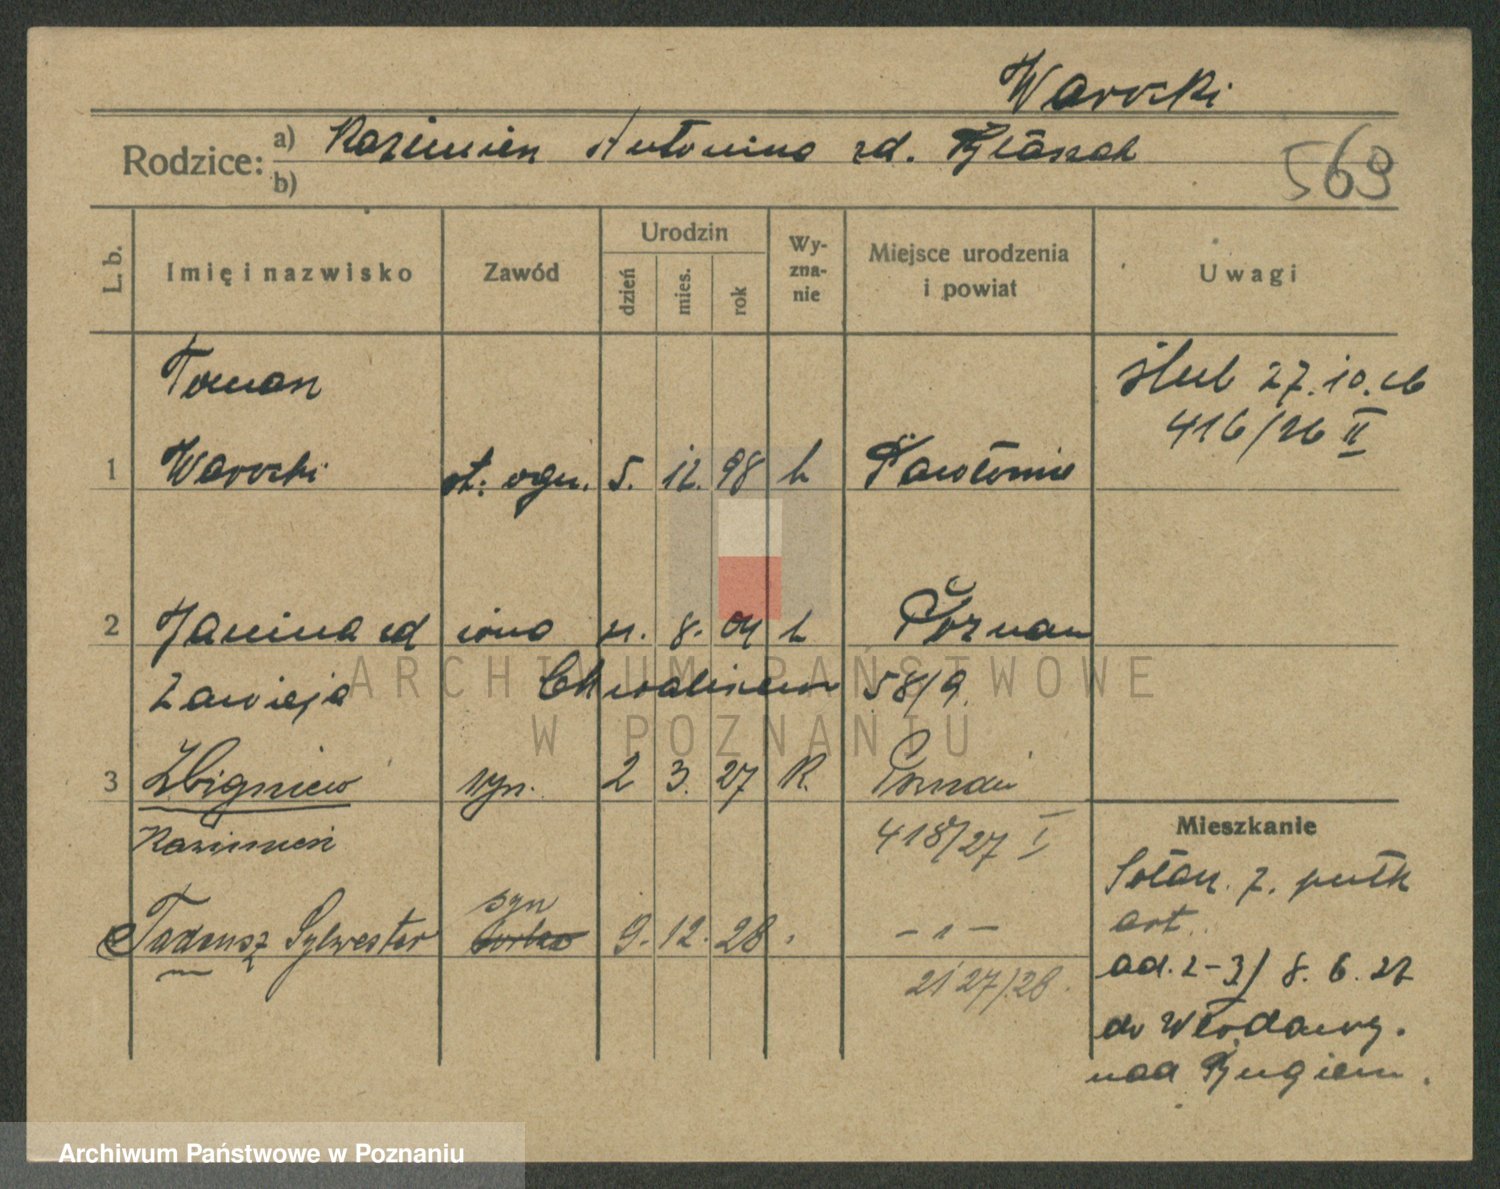 Warszki
Rodzice: a) Kazimierz Antonina zd.
b)
569
L. b.
Imię i nazwisko
Zawód
Urodzin
dzień
mies.
rok
Wy-
zna-
nie
Miejsce urodzenia
i powiat
Uwagi
Roman
ślub 27.10.26
416/26 II
1 st. ogn. 5. 12. 98
2 Janina zd żona 8. 04 Poznań
Zawieja 58/9.
3 Zbigniew syn. 2 3. 27 R. Poznań
Kazimierz 418/27 I
Tadeusz Sylwester syn 9. 12. 28 - " -
2127/28.
Mieszkanie
Sołacz. 7. pułk
art.
ad. 2-3/ 8. 6. 27
do Włodawy.
nad Bugiem.
ARCHIWUM PAŃSTWOWE
W POZNANIU
Archiwum Państwowe w Poznaniu